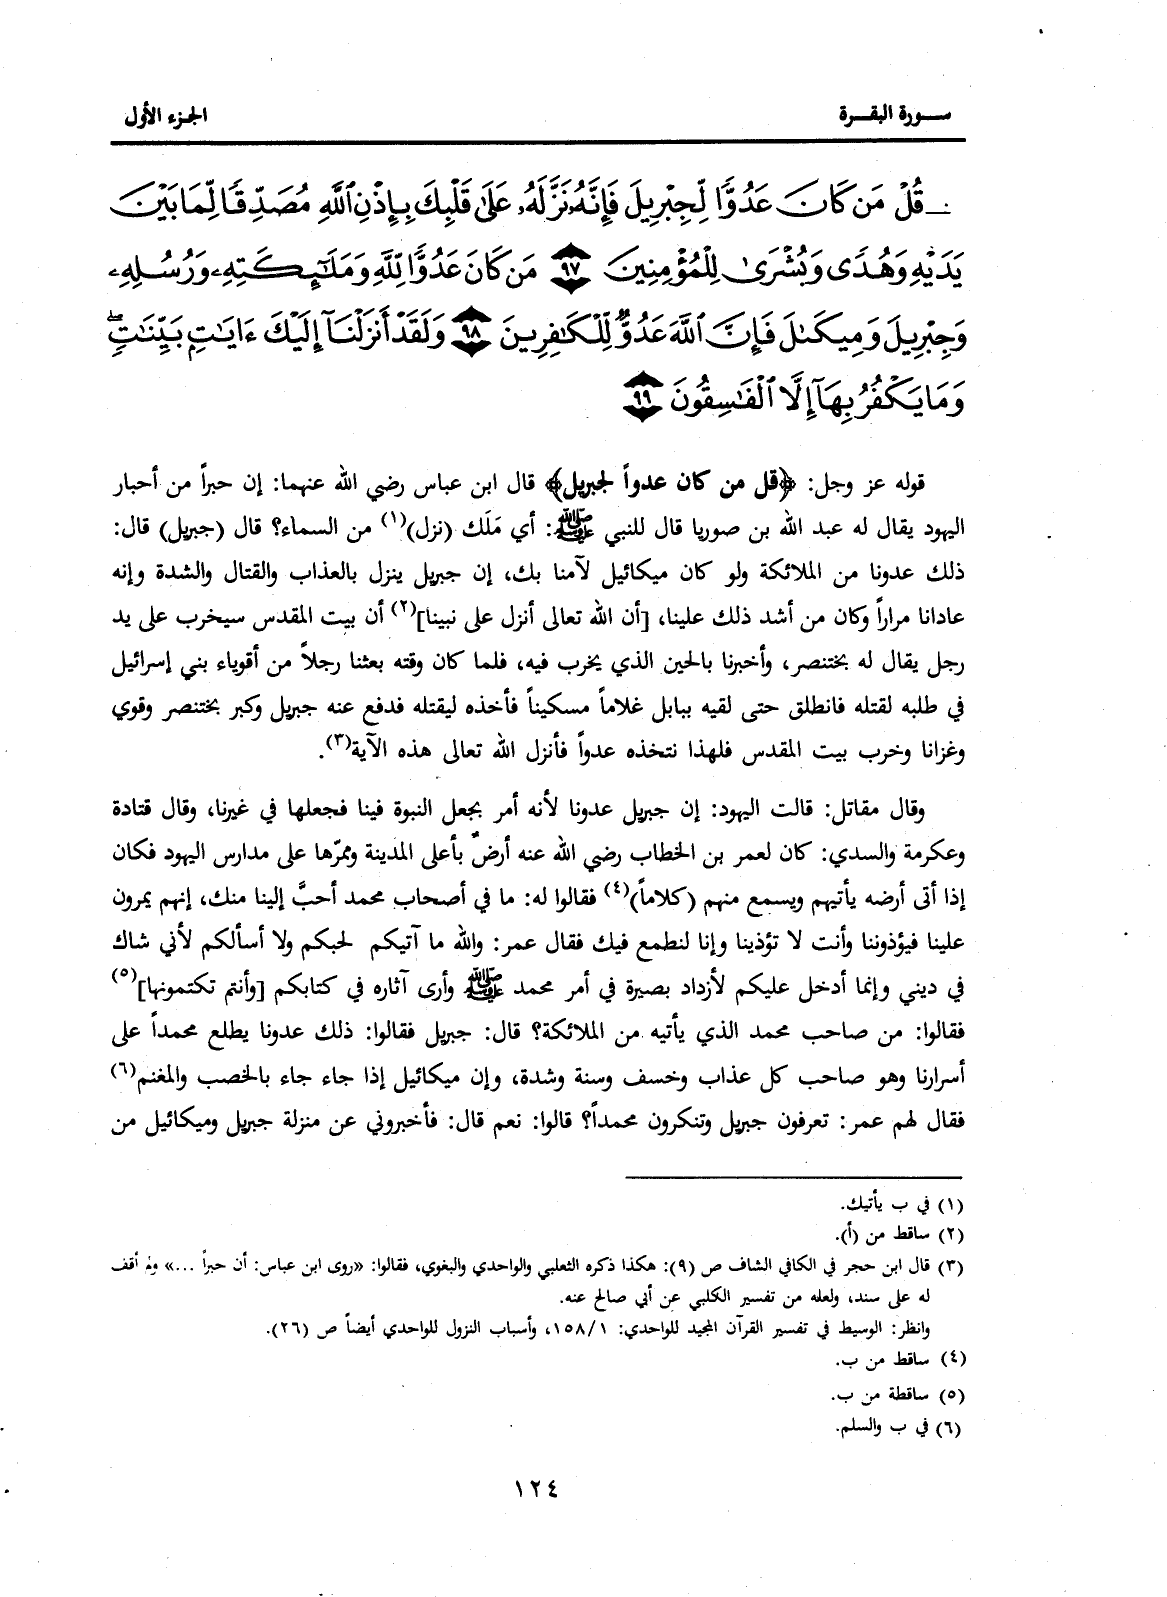 سـورة البقـرة
الجزء الأول
قُلْ مَن كَانَ عَدُوًّا لِّجِبْرِيلَ فَإِنَّهُۥ نَزَّلَهُۥ عَلَىٰ قَلْبِكَ بِإِذْنِ ٱللَّهِ مُصَدِّقًا لِّمَا بَيْنَ
يَدَيْهِ وَهُدًى وَبُشْرَىٰ لِلْمُؤْمِنِينَ ٩٧ مَن كَانَ عَدُوًّا لِّلَّهِ وَمَلَٰٓئِكَتِهِۦ وَرُسُلِهِۦ
وَجِبْرِيلَ وَمِيكَىٰلَ فَإِنَّ ٱللَّهَ عَدُوٌّ لِّلْكَٰفِرِينَ ٩٨ وَلَقَدْ أَنزَلْنَآ إِلَيْكَ ءَايَٰتٍۭ بَيِّنَٰتٍۖ
وَمَا يَكْفُرُ بِهَآ إِلَّا ٱلْفَٰسِقُونَ ٩٩
قوله عز وجل: ﴿قل من كان عدواً لجبريل﴾ قال ابن عباس رضي الله عنهما: إن حبراً من أحبار
اليهود يقال له عبد الله بن صوريا قال للنبي ﷺ: أي مَلَك (نزل)(١) من السماء؟ قال (جبريل) قال:
ذلك عدونا من الملائكة ولو كان ميكائيل لآمنا بك، إن جبريل ينزل بالعذاب والقتال والشدة وإنه
عادانا مراراً وكان من أشد ذلك علينا، [أن الله تعالى أنزل على نبينا](٢) أن بيت المقدس سيخرب على يد
رجل يقال له بختنصر، وأخبرنا بالحين الذي يخرب فيه، فلما كان وقته بعثنا رجلاً من أقوياء بني إسرائيل
في طلبه لقتله فانطلق حتى لقيه ببابل غلاماً مسكيناً فأخذه ليقتله فدفع عنه جبريل وكبر بختنصر وقوي
وغزانا وخرب بيت المقدس فلهذا نتخذه عدواً فأنزل الله تعالى هذه الآية(٣).
وقال مقاتل: قالت اليهود: إن جبريل عدونا لأنه أمر بجعل النبوة فينا فجعلها في غيرنا، وقال قتادة
وعكرمة والسدي: كان لعمر بن الخطاب رضي الله عنه أرضٌ بأعلى المدينة وممرّها على مدارس اليهود فكان
إذا أتى أرضه يأتيهم ويسمع منهم (كلاماً)(٤) فقالوا له: ما في أصحاب محمد أحبَّ إلينا منك، إنهم يمرون
علينا فيؤذوننا وأنت لا تؤذينا وإنا لنطمع فيك فقال عمر: والله ما آتيكم لحبكم ولا أسألكم لأني شاك
في ديني وإنما أدخل عليكم لأزداد بصيرة في أمر محمد ﷺ وأرى آثاره في كتابكم [وأنتم تكتمونها](٥)
فقالوا: من صاحب محمد الذي يأتيه من الملائكة؟ قال: جبريل فقالوا: ذلك عدونا يطلع محمداً على
أسرارنا وهو صاحب كل عذاب وخسف وسنة وشدة، وإن ميكائيل إذا جاء جاء بالخصب والمغنم(٦)
فقال لهم عمر: تعرفون جبريل وتنكرون محمداً؟ قالوا: نعم قال: فأخبروني عن منزلة جبريل وميكائيل من
(١) في ب يأتيك.
(٢) ساقط من (أ).
(٣) قال ابن حجر في الكافي الشاف ص (٩): هكذا ذكره الثعلبي والواحدي والبغوي، فقالوا: «روى ابن عباس: أن حبراً ...» ولم أقف
له على سند، ولعله من تفسير الكلبي عن أبي صالح عنه.
وانظر: الوسيط في تفسير القرآن المجيد للواحدي: ١٥٨/١، وأسباب النزول للواحدي أيضاً ص (٢٦).
(٤) ساقط من ب.
(٥) ساقطة من ب.
(٦) في ب والسلم.
١٢٤